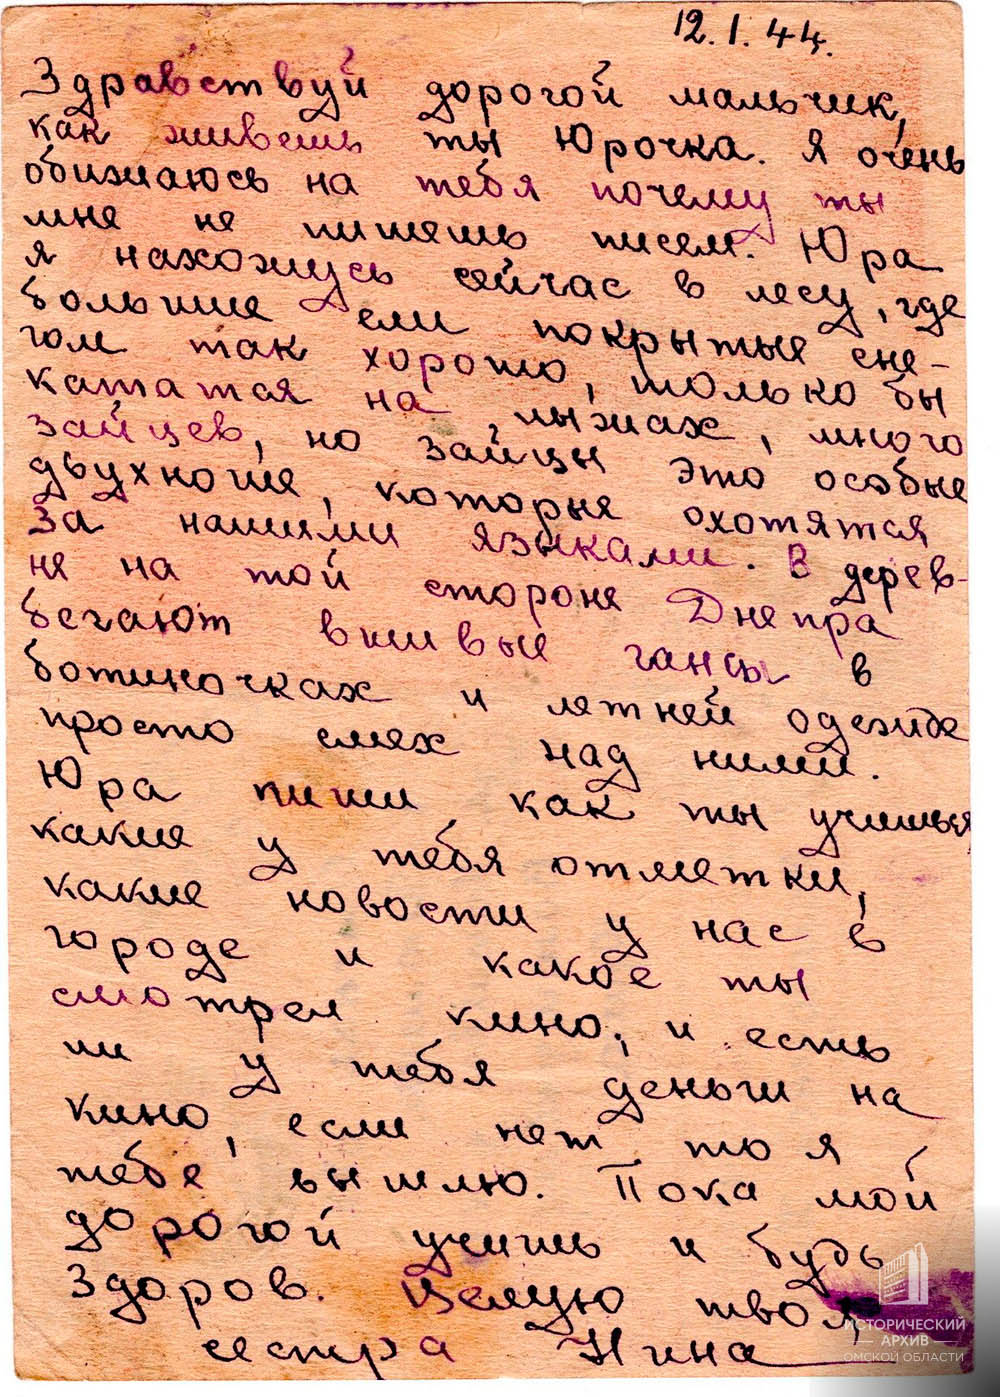 12.1.44.
Здравствуй дорогой мальчик,
как живешь ты Юрочка. Я очень
обижаюсь на тебя почему ты
мне не пишешь писем. Юра
я нахожусь сейчас в лесу, где
большие ели покрытые сне-
гом так хорошо, только бы
кататся на лыжах, много
зайцев, но зайцы это особые
двухногие, которые охотятся
за нашими языками. В дерев-
не на той стороне Днепра
бегают вшивые гансы в
ботиночках и летней одежде
просто смех над ними.
Юра пиши как ты учишься
какие у тебя отметки,
какие новости у нас в
городе и какое ты
смотрел кино, и есть
ли у тебя деньги на
кино, если нет то я
тебе вышлю. Пока мой
дорогой учишь и будь
здоров. Целую твоя
сестра Нина
ИСТОРИЧЕСКИЙ
АРХИВ
ОМСКОЙ ОБЛАСТИ